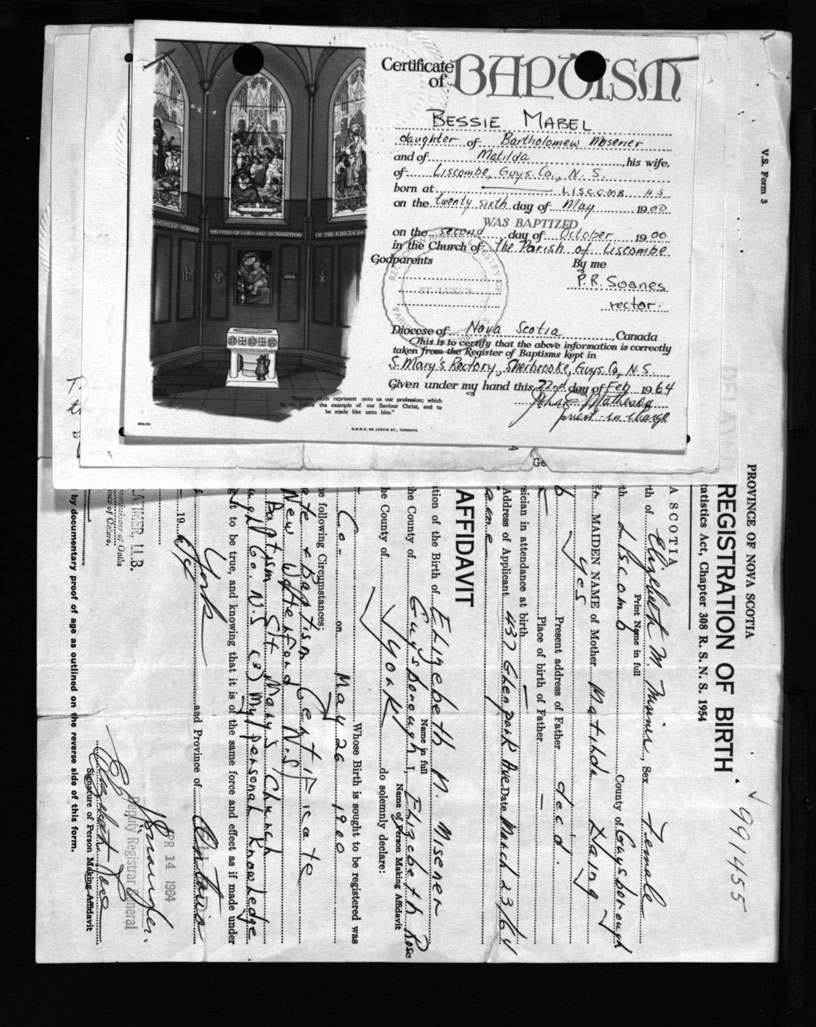 Certificate of BAPTISM
BESSIE MABEL
daughter of Bartholomew Misener
and of Matilda, his wife,
of Liscombe, Guys. Co., N. S.
born at LISCOMB N S
on the twenty sixth day of May 1900
WAS BAPTIZED
on the second day of October 1900
in the Church of The Parish of Liscombe
Godparents By me
P.R. Soanes
rector.
ST. LUKE'S
Diocese of Nova Scotia, Canada
This is to certify that the above information is correctly
taken from the Register of Baptisms kept in
S. Mary's Rectory, Sherbrooke, Guys. Co., N.S.
Given under my hand this 22nd day of Feb 1964
priest-in-charge
represent unto us our profession; which
the example of our Saviour Christ, and to
be made like unto him."
V.S. Form 3
PROVINCE OF NOVA SCOTIA
REGISTRATION OF BIRTH
tatistics Act, Chapter 308 R. S. N. S. 1954
991455
A SCOTIA
th of Elizabeth M Misener, Sex Female
Print Name in full
th Liscomb County of Guysborough
MAIDEN NAME of Mother Matilda
yes
Present address of Father dec'd.
Place of birth of Father —
sician in attendance at birth —
Address of Applicant 437 Glenpark Ave. Date March 23/64
AFFIDAVIT
tion of the Birth of Elizabeth M. Misener
Name in full
the County of Guysborough I, Elizabeth Rose
Name of Person Making Affidavit
the County of York do solemnly declare:
Whose Birth is sought to be registered was
Co. on May 26 1900
e following Circumstances:
ate & Baptism Certificate
New Waterford N.S.
Baptism St. Mary's Church
Co. N.S (3) My personal knowledge
t to be true, and knowing that it is of the same force and effect as if made under
York and Province of Ontario
19 64
LATIMER, LL.B.
Deputy Registrar General
APR 14 1964
Signature of Person Making Affidavit
by documentary proof of age as outlined on the reverse side of this form.